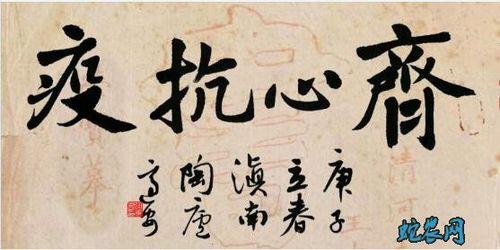 齊心抗疫
庚子
立春
滇南
陶廬
蛇农网